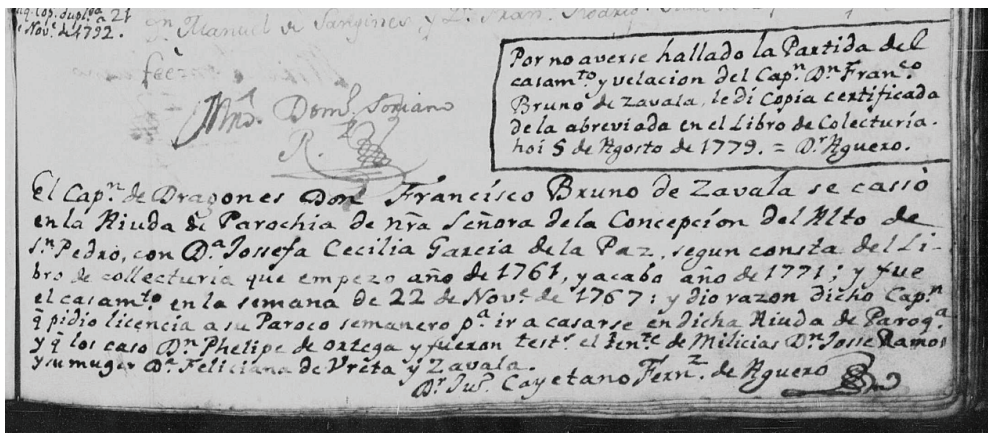 Nov.e de 1792.
Dn. Manuel de Sanginés, y Dn. Fran.
feé=
Dom.o Soriano
R.
Por no averse hallado la Partida del
casam.to y velacion del Cap.n D.n Fran.co
Bruno de Zavala, le di Copia certificada
dela abreviada en el Libro de Colecturía.
hoi 5 de Agosto de 1779. = D.r Aguero.
El Cap.n de Dragones Don Francisco Bruno de Zavala se cassó
en la Aiuda de Parochia de nrã Señora dela Concepcion del Alto de
S.n Pedro, con D.a Jossefa Cecilia Garcia de la Paz, segun consta del Li-
bro de collecturía que empezo año de 1761, y acabo año de 1771; y fue
el casam.to en la semana de 22 de Nov.e de 1767: y dio razon dicho Cap.n
q̃ pidio licencia a su Paroco semanero p.a ir a casarse en dicha Aiuda de Paroq.a
y q̃ los caso D.n Phelipe de Ortega y fueron test.s el Ten.te de Milicias D.n Josse Ramos
y su muger D.a Feliciana de Vreta y Zavala.
D.r Ju.o Cayetano Fern.z de Aguero